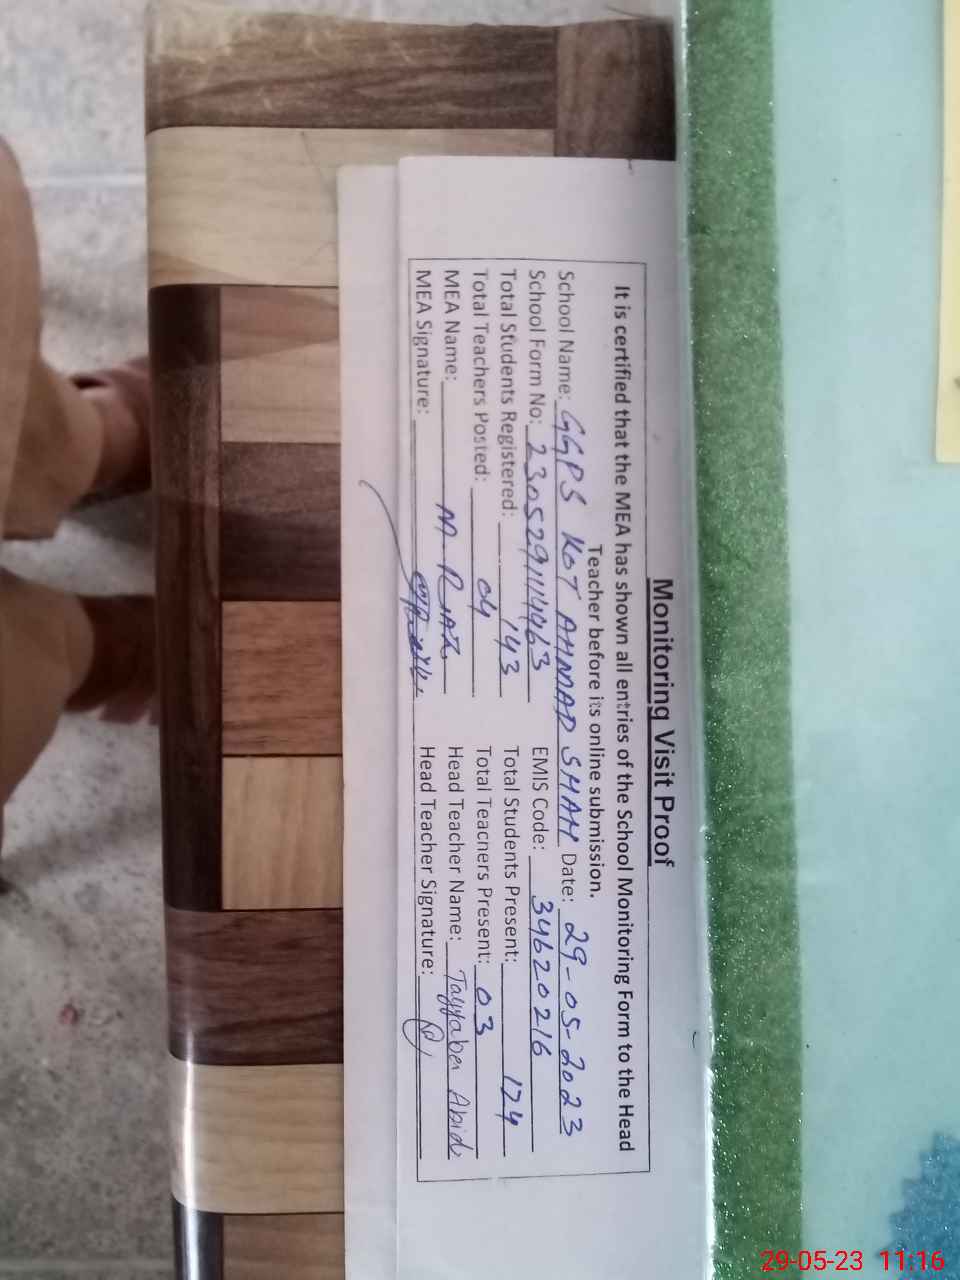 Monitoring Visit Proof
It is certified that the MEA has shown all entries of the School Monitoring Form to the Head
Teacher before its online submission.
School Name: GGPS KOT AHMAD SHAH Date: 29-05-2023
School Form No: 230529114463 EMIS Code: 34620216
Total Students Registered: 143 Total Students Present: 124
Total Teachers Posted: 04 Total Teachers Present: 03
MEA Name: M. RIAZ Head Teacher Name: Tayyaba Abid
MEA Signature: Head Teacher Signature:
29-05-23 11:16